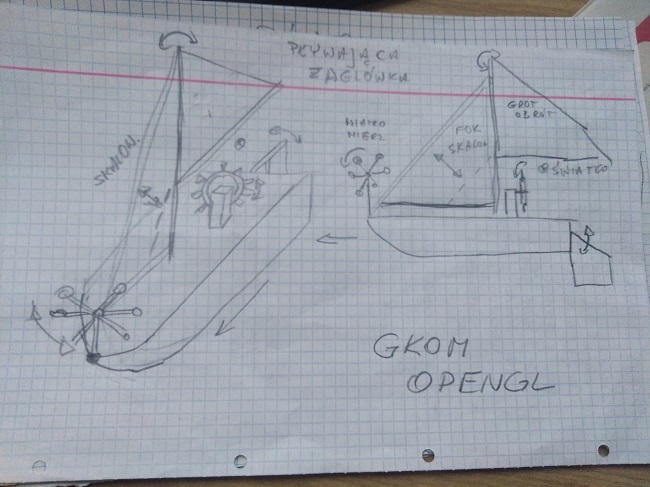 PŁYWAJĄCA
ŻAGLÓWKA
SKALOW.
WIATRO
MIERZ
FOK
SKALOW
GROT
OBRÓT
ŚWIATŁO
GKOM
OPENGL